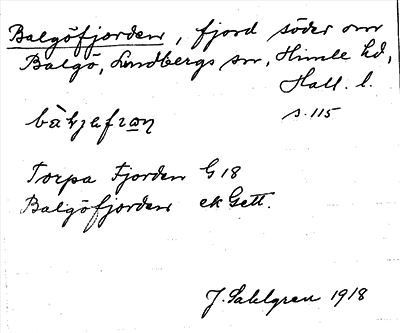 Balgöfjorden, fjord söder om
Balgö, Lindbergs sn, Himle hd,
Hall. l.
s. 115
Torpa Fjorden G 18
Balgöfjorden ek Gett.
J. Sahlgren 1918